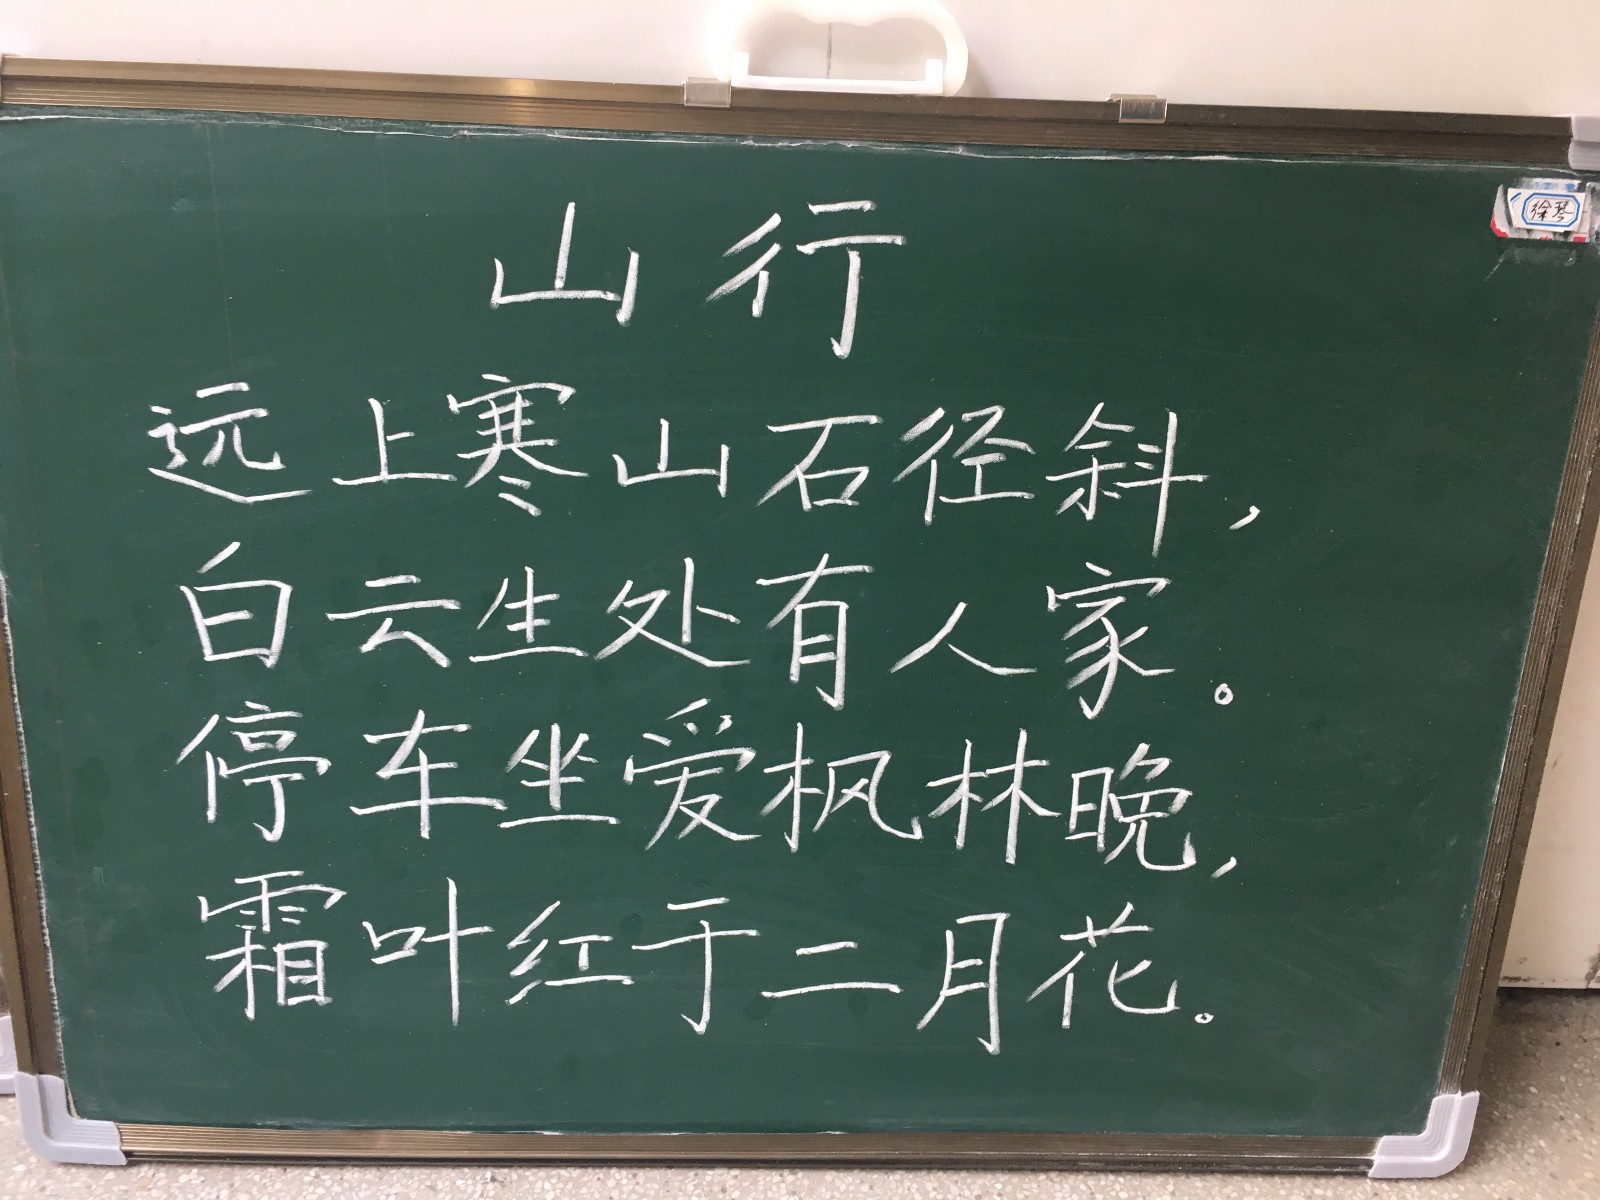 山行
徐琴
远上寒山石径斜，
白云生处有人家。
停车坐爱枫林晚，
霜叶红于二月花。